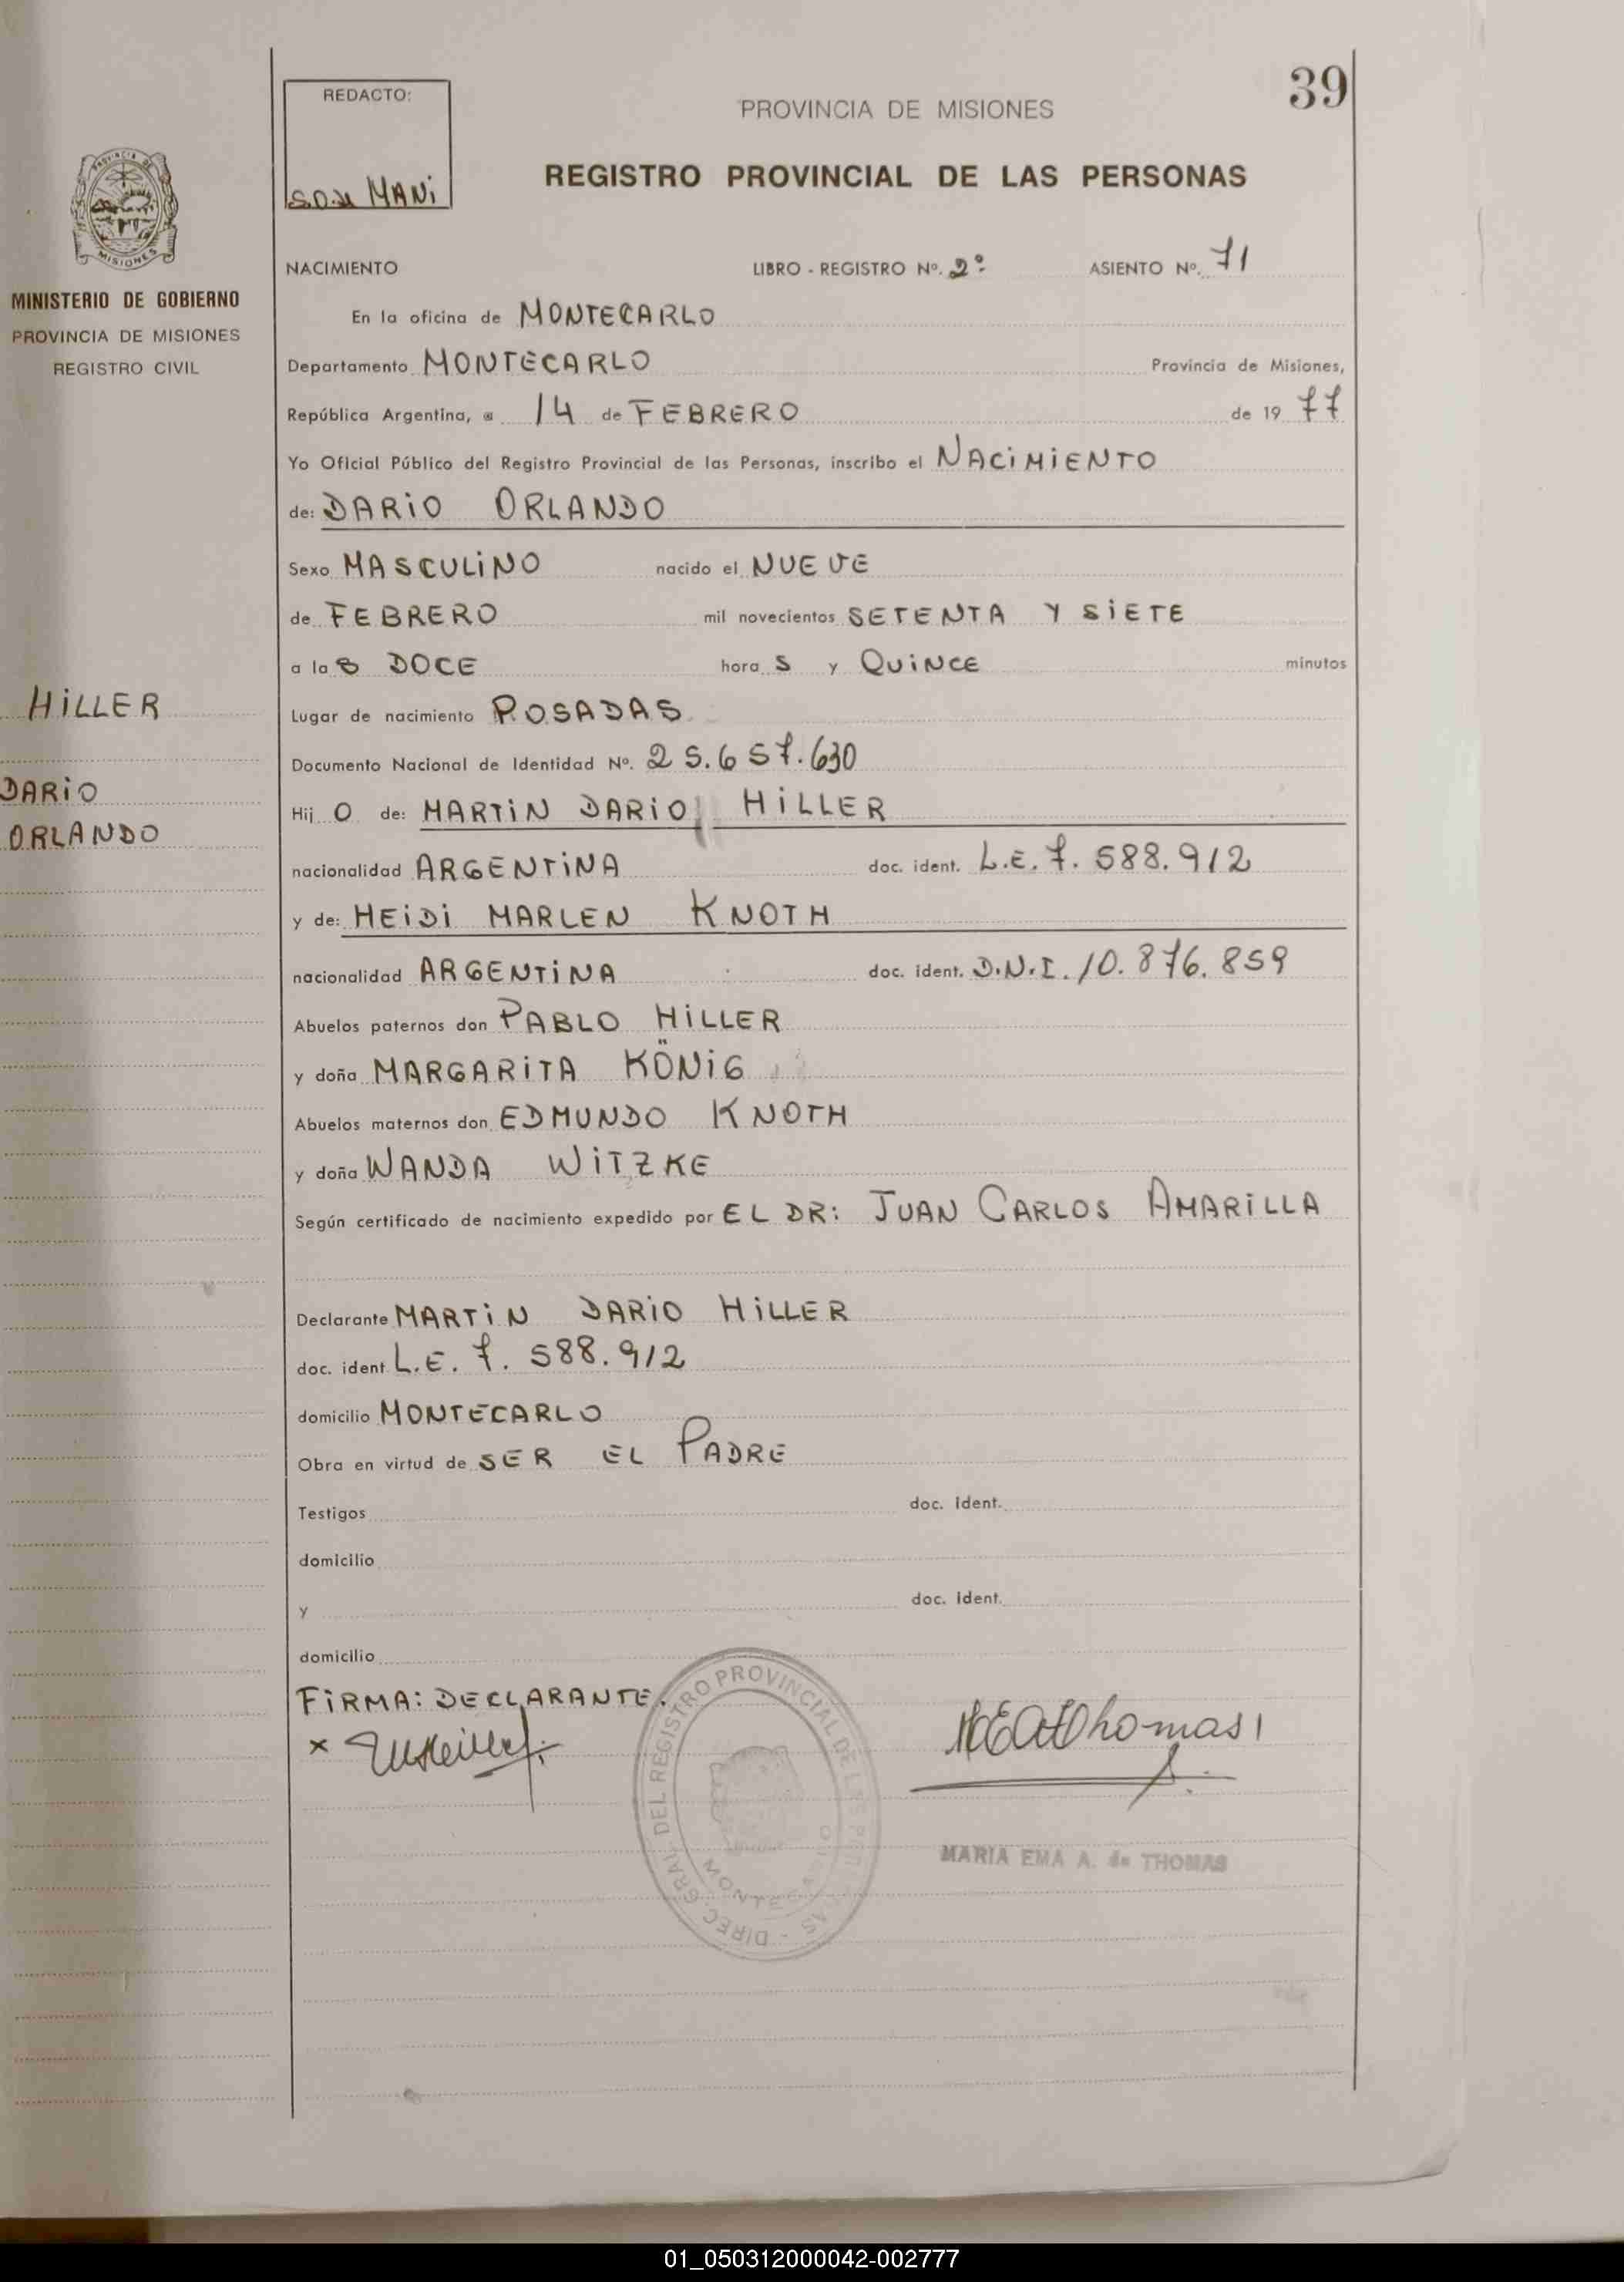 39
REDACTO:
S.D.de MANi
PROVINCIA DE MISIONES
REGISTRO PROVINCIAL DE LAS PERSONAS
PROVINCIA DE
MISIONES
MINISTERIO DE GOBIERNO
PROVINCIA DE MISIONES
REGISTRO CIVIL
HiLLER
DARiO
ORLANDO
NACIMIENTO LIBRO - REGISTRO Nº. 2º ASIENTO Nº. 71
En la oficina de MONTECARLO
Departamento MONTECARLO Provincia de Misiones,
República Argentina, a 14 de FEBRERO de 19 77
Yo Oficial Público del Registro Provincial de las Personas, inscribo el NACiMiENTO
de: DARiO ORLANDO
Sexo MASCULiNO nacido el NUEVE
de FEBRERO mil novecientos SETENTA Y SiETE
a la S DOCE hora S y QUiNCE minutos
Lugar de nacimiento POSADAS
Documento Nacional de Identidad Nº. 25.657.630
Hij O de: MARTiN DARiO HiLLER
nacionalidad ARGENTiNA doc. ident. L.E. 7.588.912
y de: HEiDi MARLEN KNOTH
nacionalidad ARGENTiNA doc. ident. D.N.I. 10.876.859
Abuelos paternos don PABLO HiLLER
y doña MARGARiTA KÖNiG
Abuelos maternos don EDMUNDO KNOTH
y doña WANDA WiTZKE
Según certificado de nacimiento expedido por EL DR: JUAN CARLOS AMARiLLA
Declarante MARTiN DARiO HiLLER
doc. ident. L.E. 7.588.912
domicilio MONTECARLO
Obra en virtud de SER EL PADRE
Testigos doc. ident.
domicilio
y doc. ident.
domicilio
FiRMA: DECLARANTE.
x
DIREC. GRAL. DEL REGISTRO PROVINCIAL DE LAS PERSONAS
MONTECARLO
MARIA EMA A. de THOMAS
01_050312000042-002777